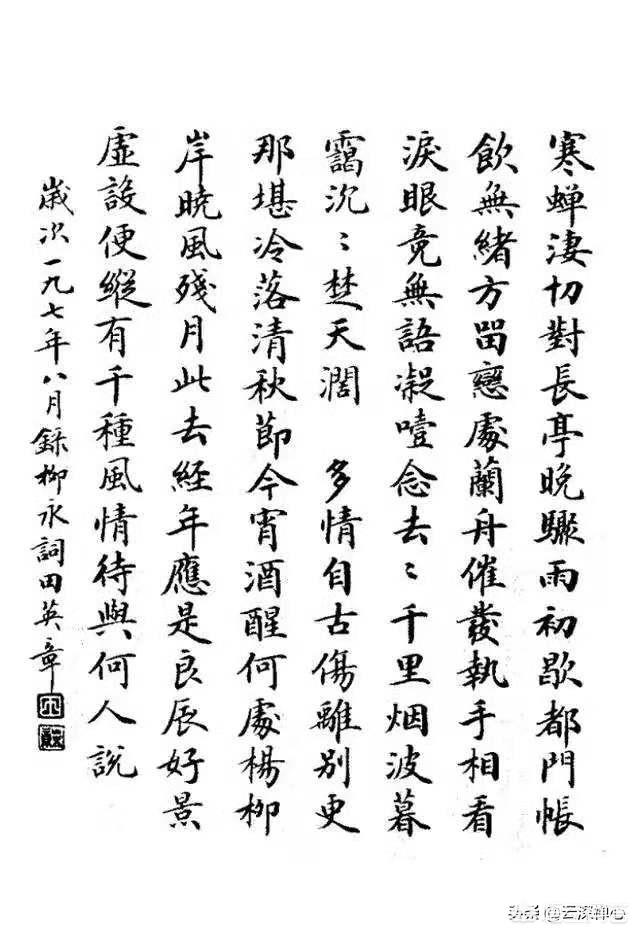 寒蟬淒切對長亭晚驟雨初歇都門帳
飲無緒方留戀處蘭舟催發執手相看
淚眼竟無語凝噎念去〻千里烟波暮
靄沉〻楚天濶 多情自古傷離別更
那堪冷落清秋節今宵酒醒何處楊柳
岸曉風殘月此去經年應是良辰好景
虛設便縱有千種風情待與何人說
歲次一九七年八月錄柳永詞田英章
头条 @云深禅心